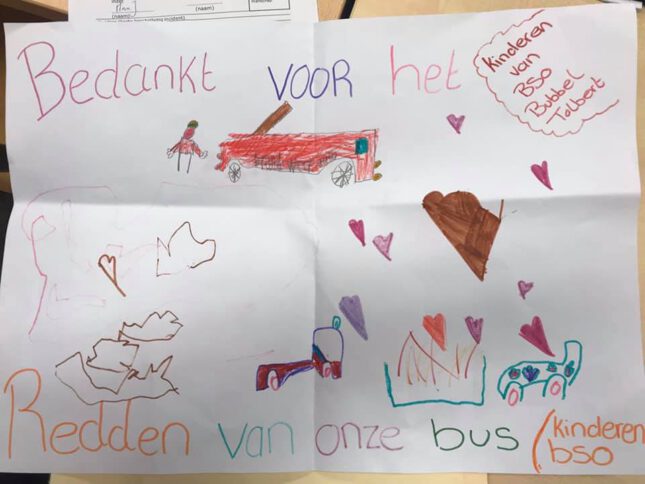 (naam)
(naam)
Bedankt voor het
Kinderen
van
BSO
Bubbel
Tolbert
Redden van onze bus (kinderen
bso